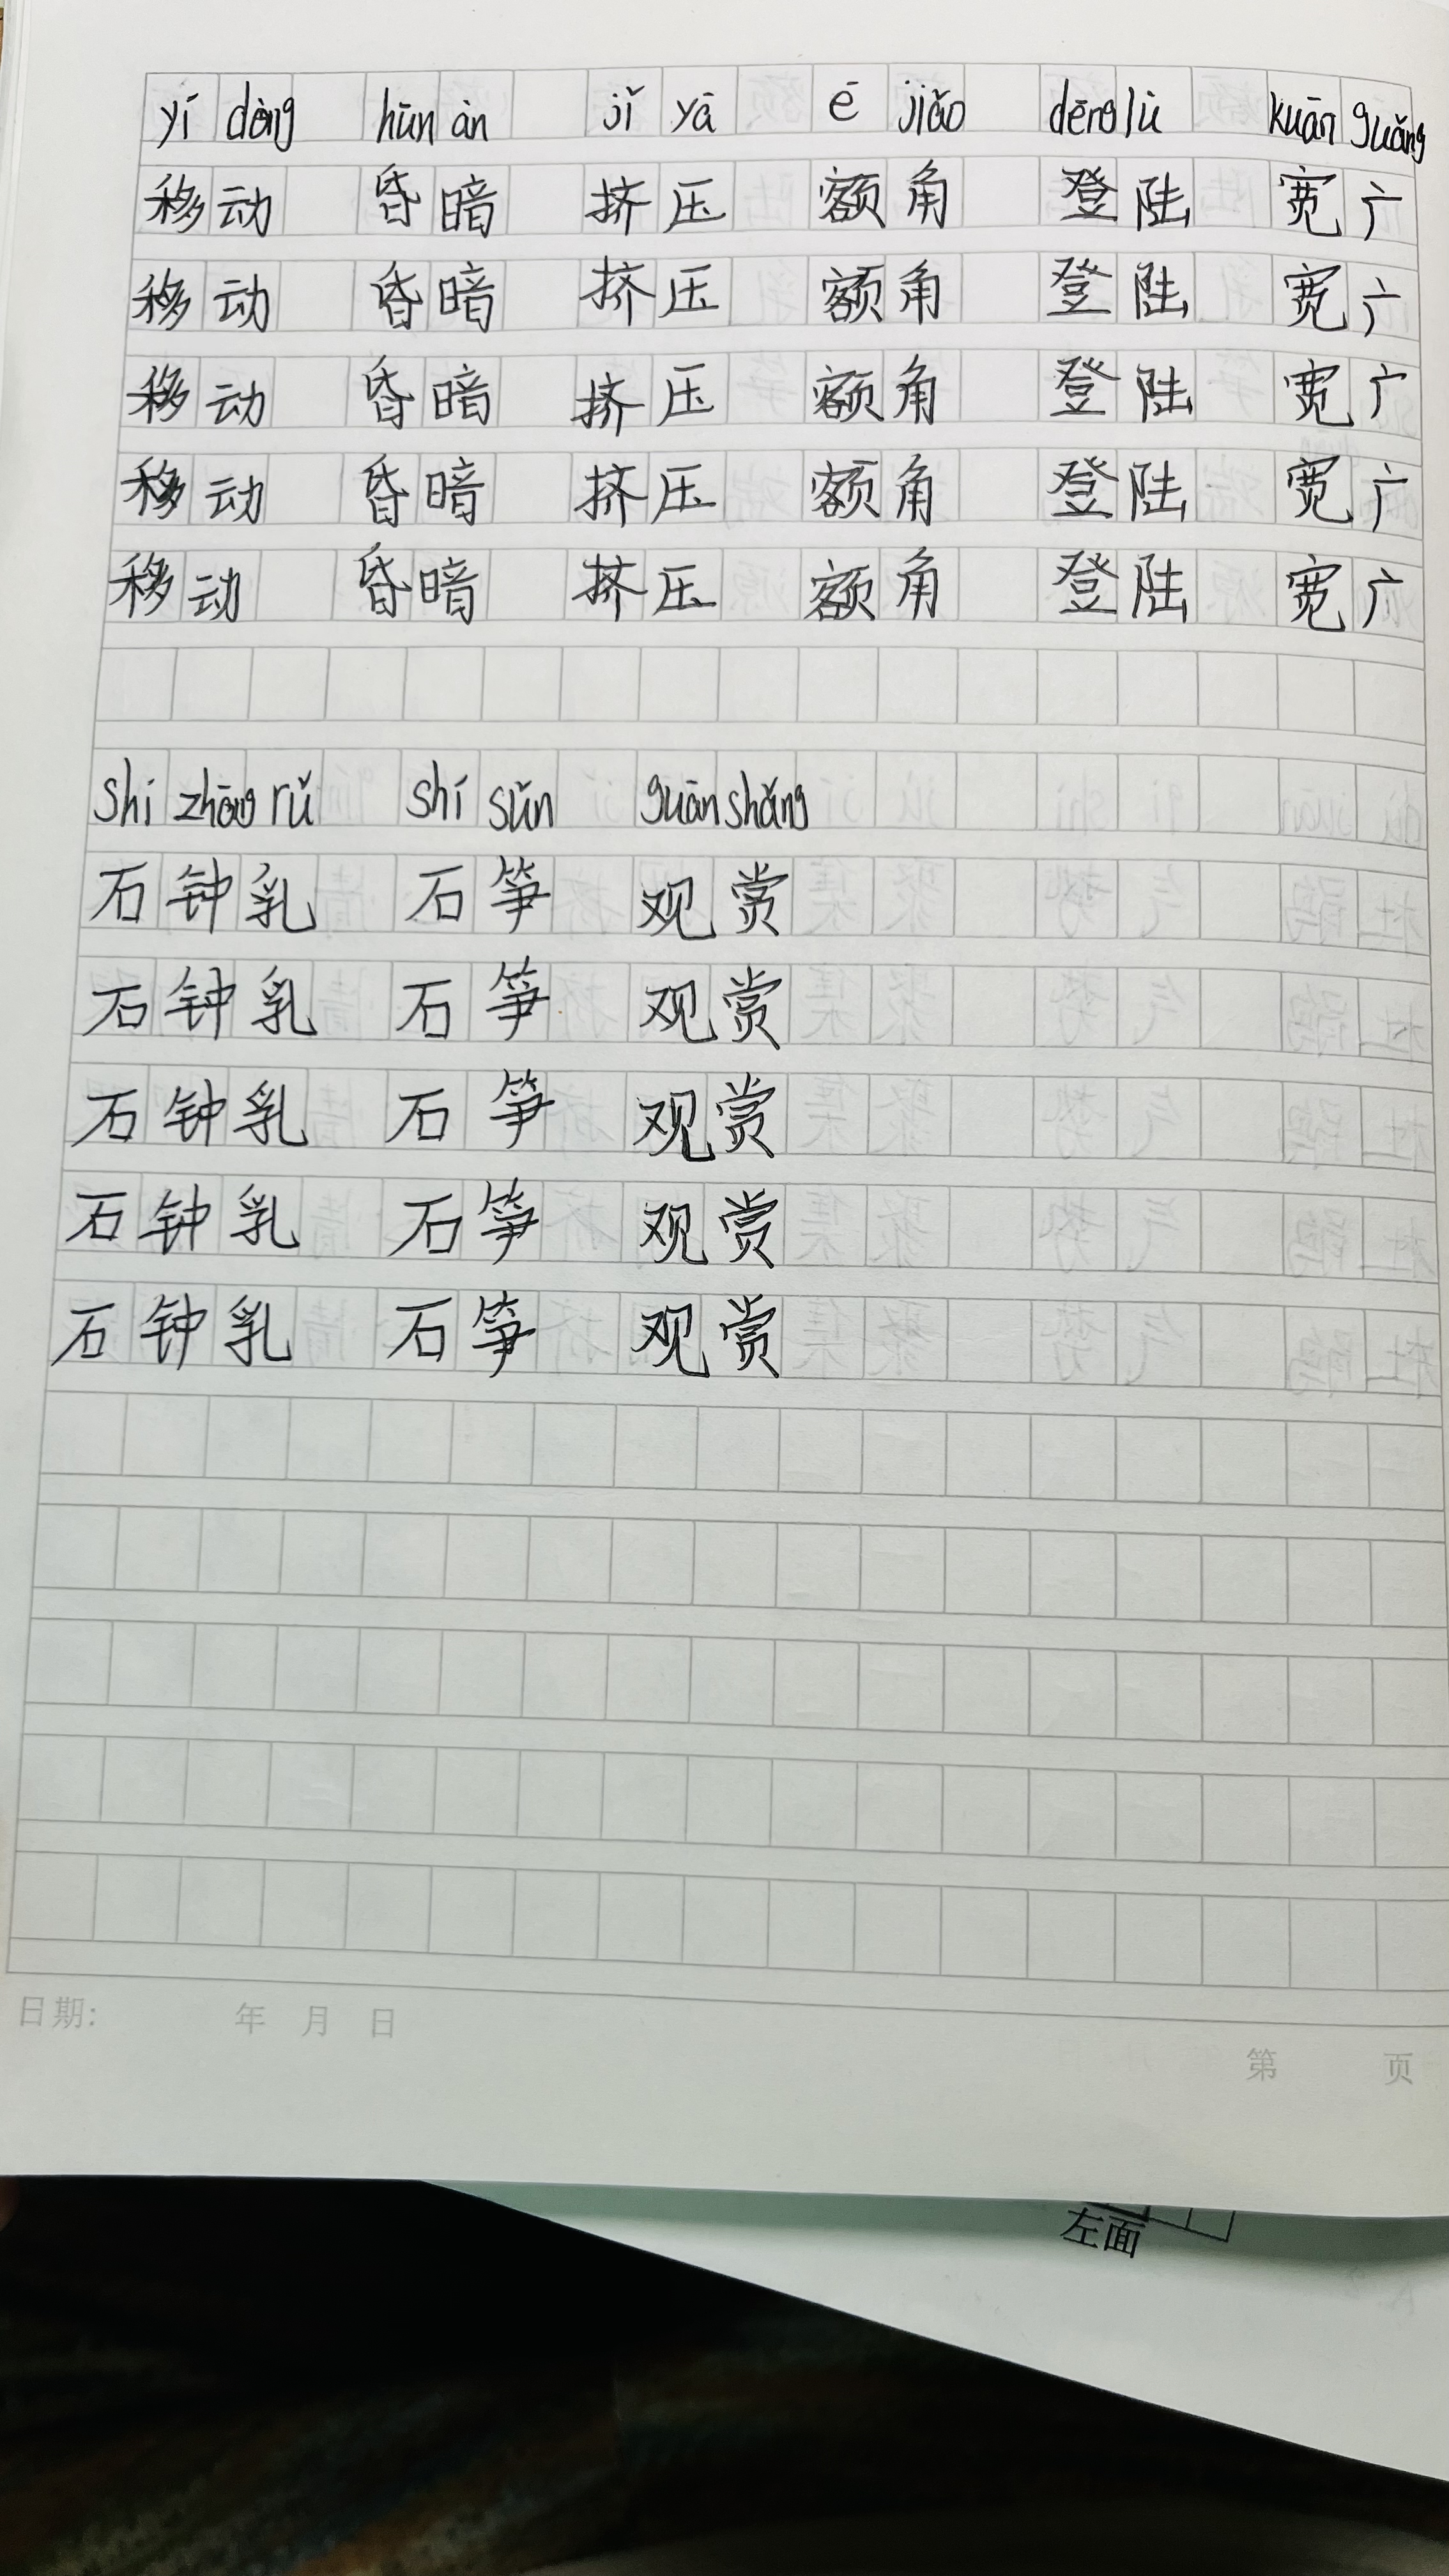 yí dòng hūn àn jǐ yā é jiǎo dēng lù kuān guǎng
移动 昏暗 挤压 额角 登陆 宽广
移动 昏暗 挤压 额角 登陆 宽广
移动 昏暗 挤压 额角 登陆 宽广
移动 昏暗 挤压 额角 登陆 宽广
移动 昏暗 挤压 额角 登陆 宽广
shí zhōng rǔ shí sǔn guān shǎng
石钟乳 石笋 观赏
石钟乳 石笋 观赏
石钟乳 石笋 观赏
石钟乳 石笋 观赏
石钟乳 石笋 观赏
日期: 年 月 日
第 页
左面